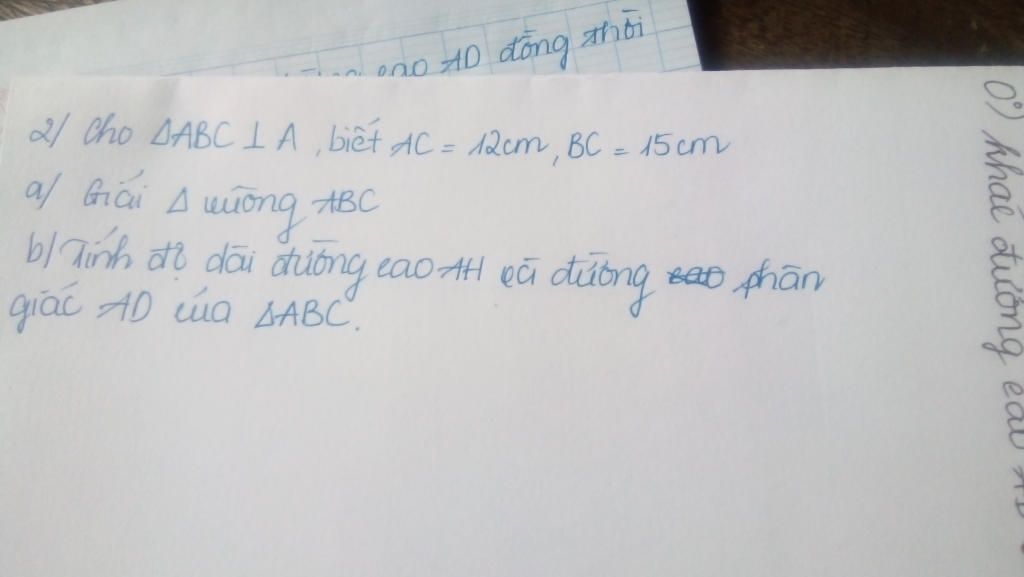 cao AD đồng thời
2/ Cho ΔABC ⊥ A, biết AC = 12cm, BC = 15cm
a/ Giải Δ vuông ABC
b/ Tính độ dài đường cao AH và đường phân
giác AD của ΔABC.
khác đường cao AD